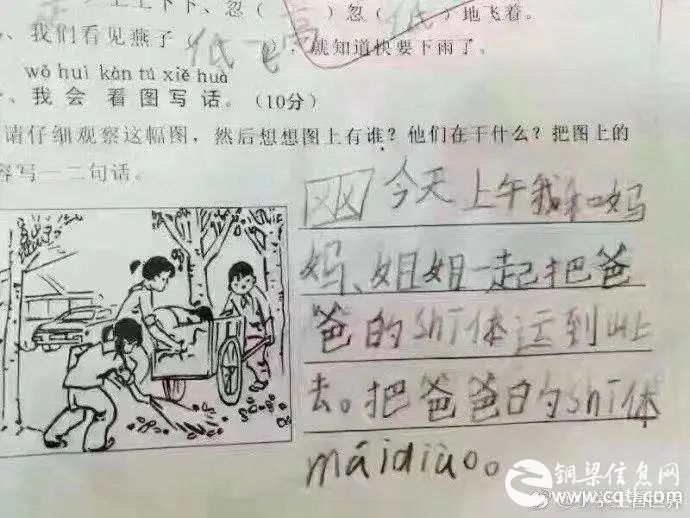 上上下下、忽（高）忽（低）地飞着。
、我们看见燕子低飞，就知道快要下雨了。
wǒ huì kàn tú xiě huà
、我会看图写话。（10分）
请仔细观察这幅图，然后想想图上有谁？他们在干什么？把图上的
容写一二句话。
今天上午我和妈
妈、姐姐一起把爸
爸的shī体运到山上
去。把爸爸的shī体
máidiào。
铜梁信息网
www.cqtl.com